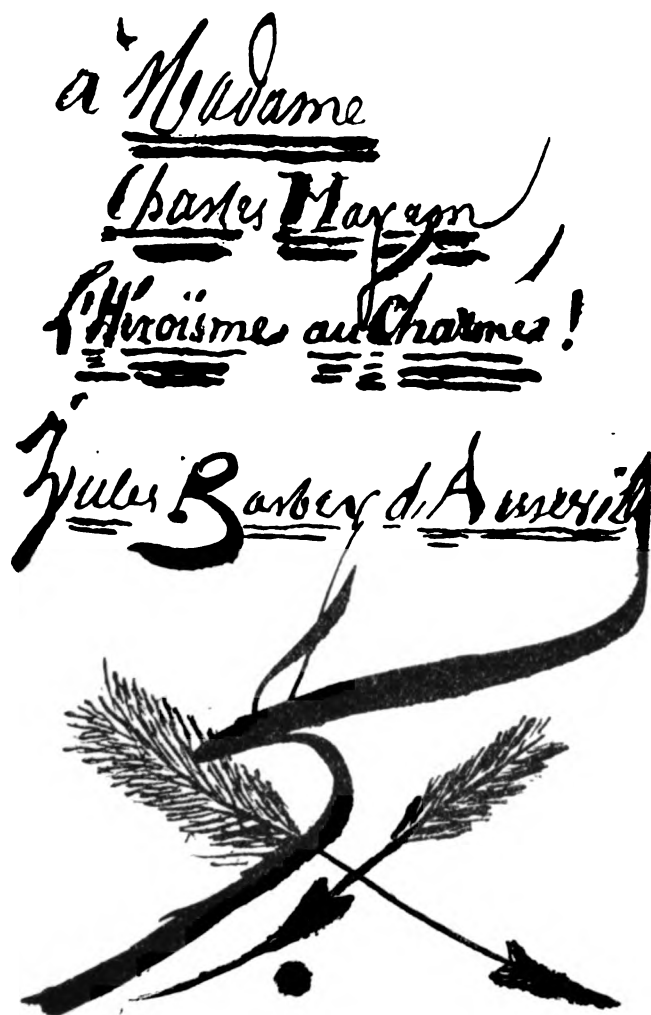 à Madame
Charles Hayem
l'Héroïsme au Charme !
Jules Barbey d'Aurevilly